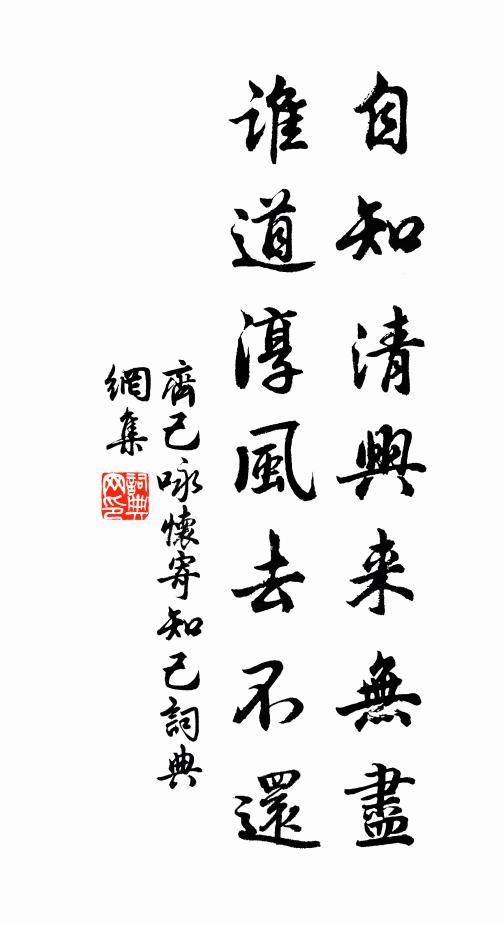 自知清興来無盡
誰道淳風去不還
齊己咏懷寄知己詞典
網集
詞典
网印